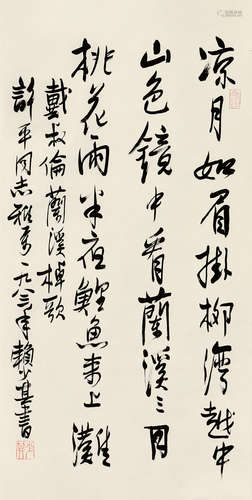 凉月如眉掛柳灣越中
山色鏡中看蘭溪三月
桃花雨半夜鯉魚來上灘
戴叔倫蘭溪棹歌
許平同志雅一九八三年賴少其書